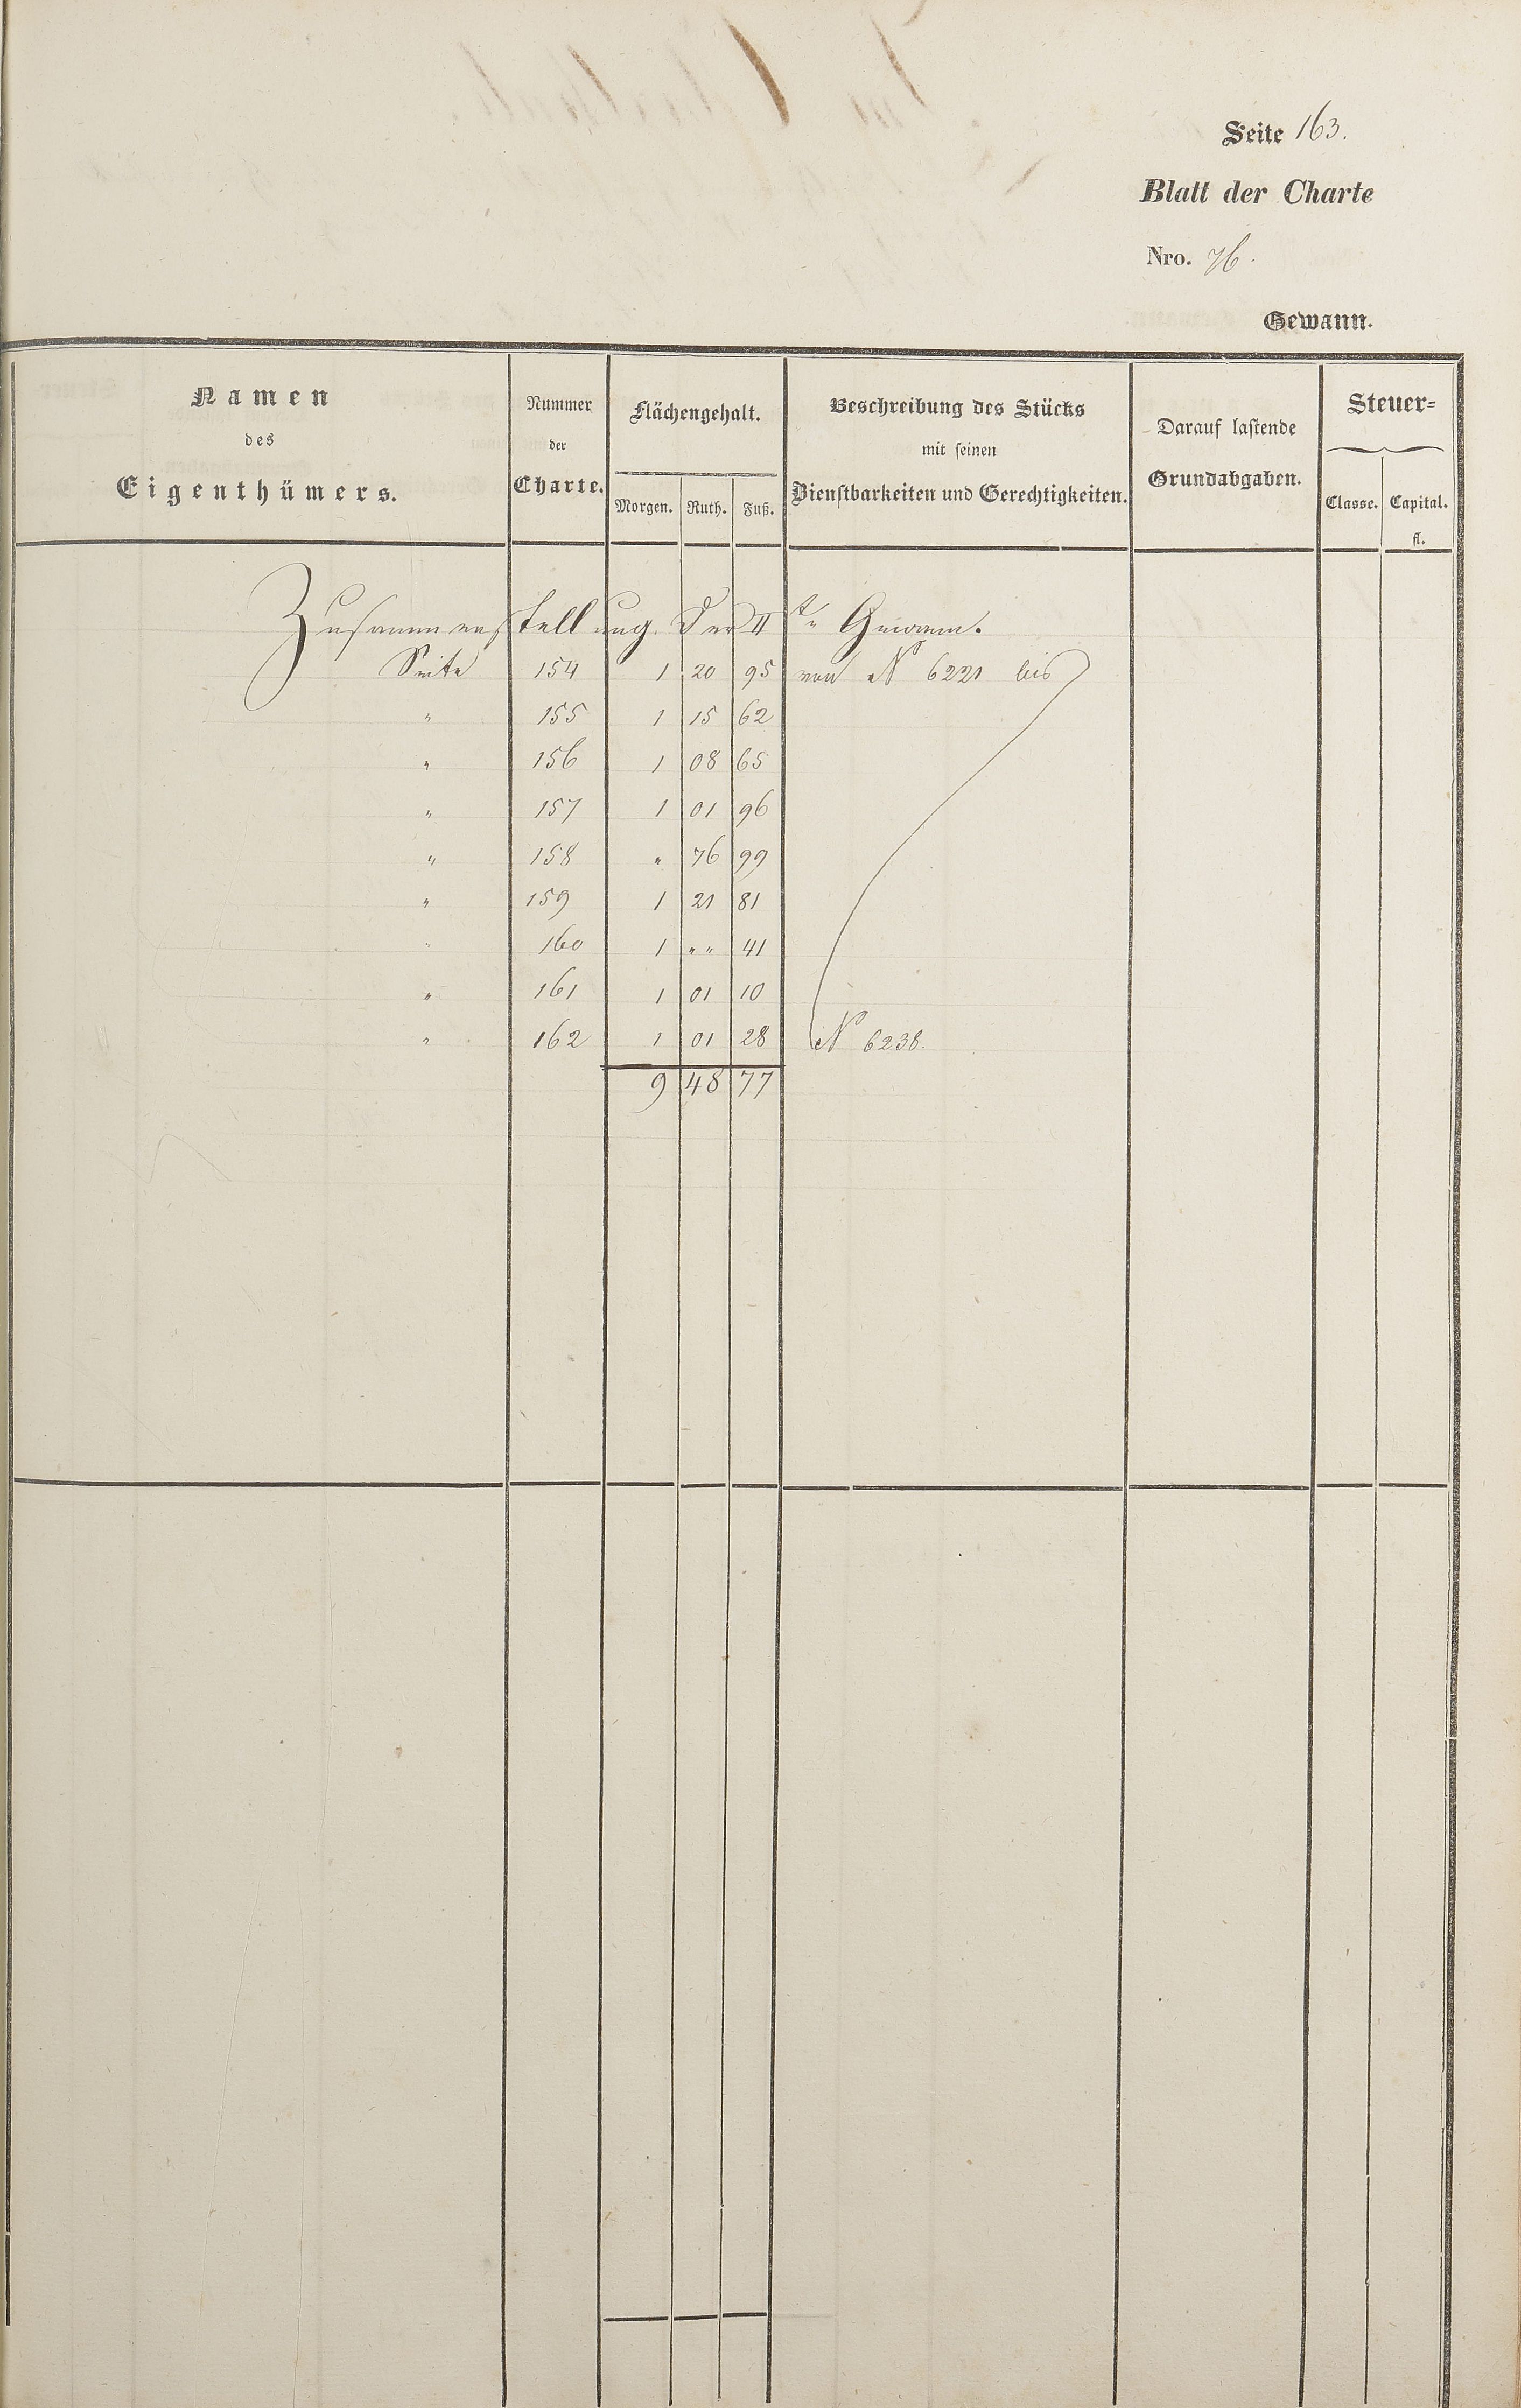 Seite 163.
Blatt der Charte
Nro. 76.
Gewann.
Namen
des
Eigenthümers.
Nummer
der
Charte.
Flächengehalt.
Morgen. Ruth. Fuß.
Beschreibung des Stücks
mit seinen
Dienstbarkeiten und Gerechtigkeiten.
Darauf lastende
Grundabgaben.
Steuer=
Classe. Capital.
fl.
Zusammenstellung der II te Gewann.
Seite 154 1 20 95 von N 6221 bis
" 155 1 15 62
" 156 1 08 65
" 157 1 01 96
" 158 " 76 99
" 159 1 21 81
" 160 1 " " 41
" 161 1 01 10
" 162 1 01 28 N 6238.
9 48 77